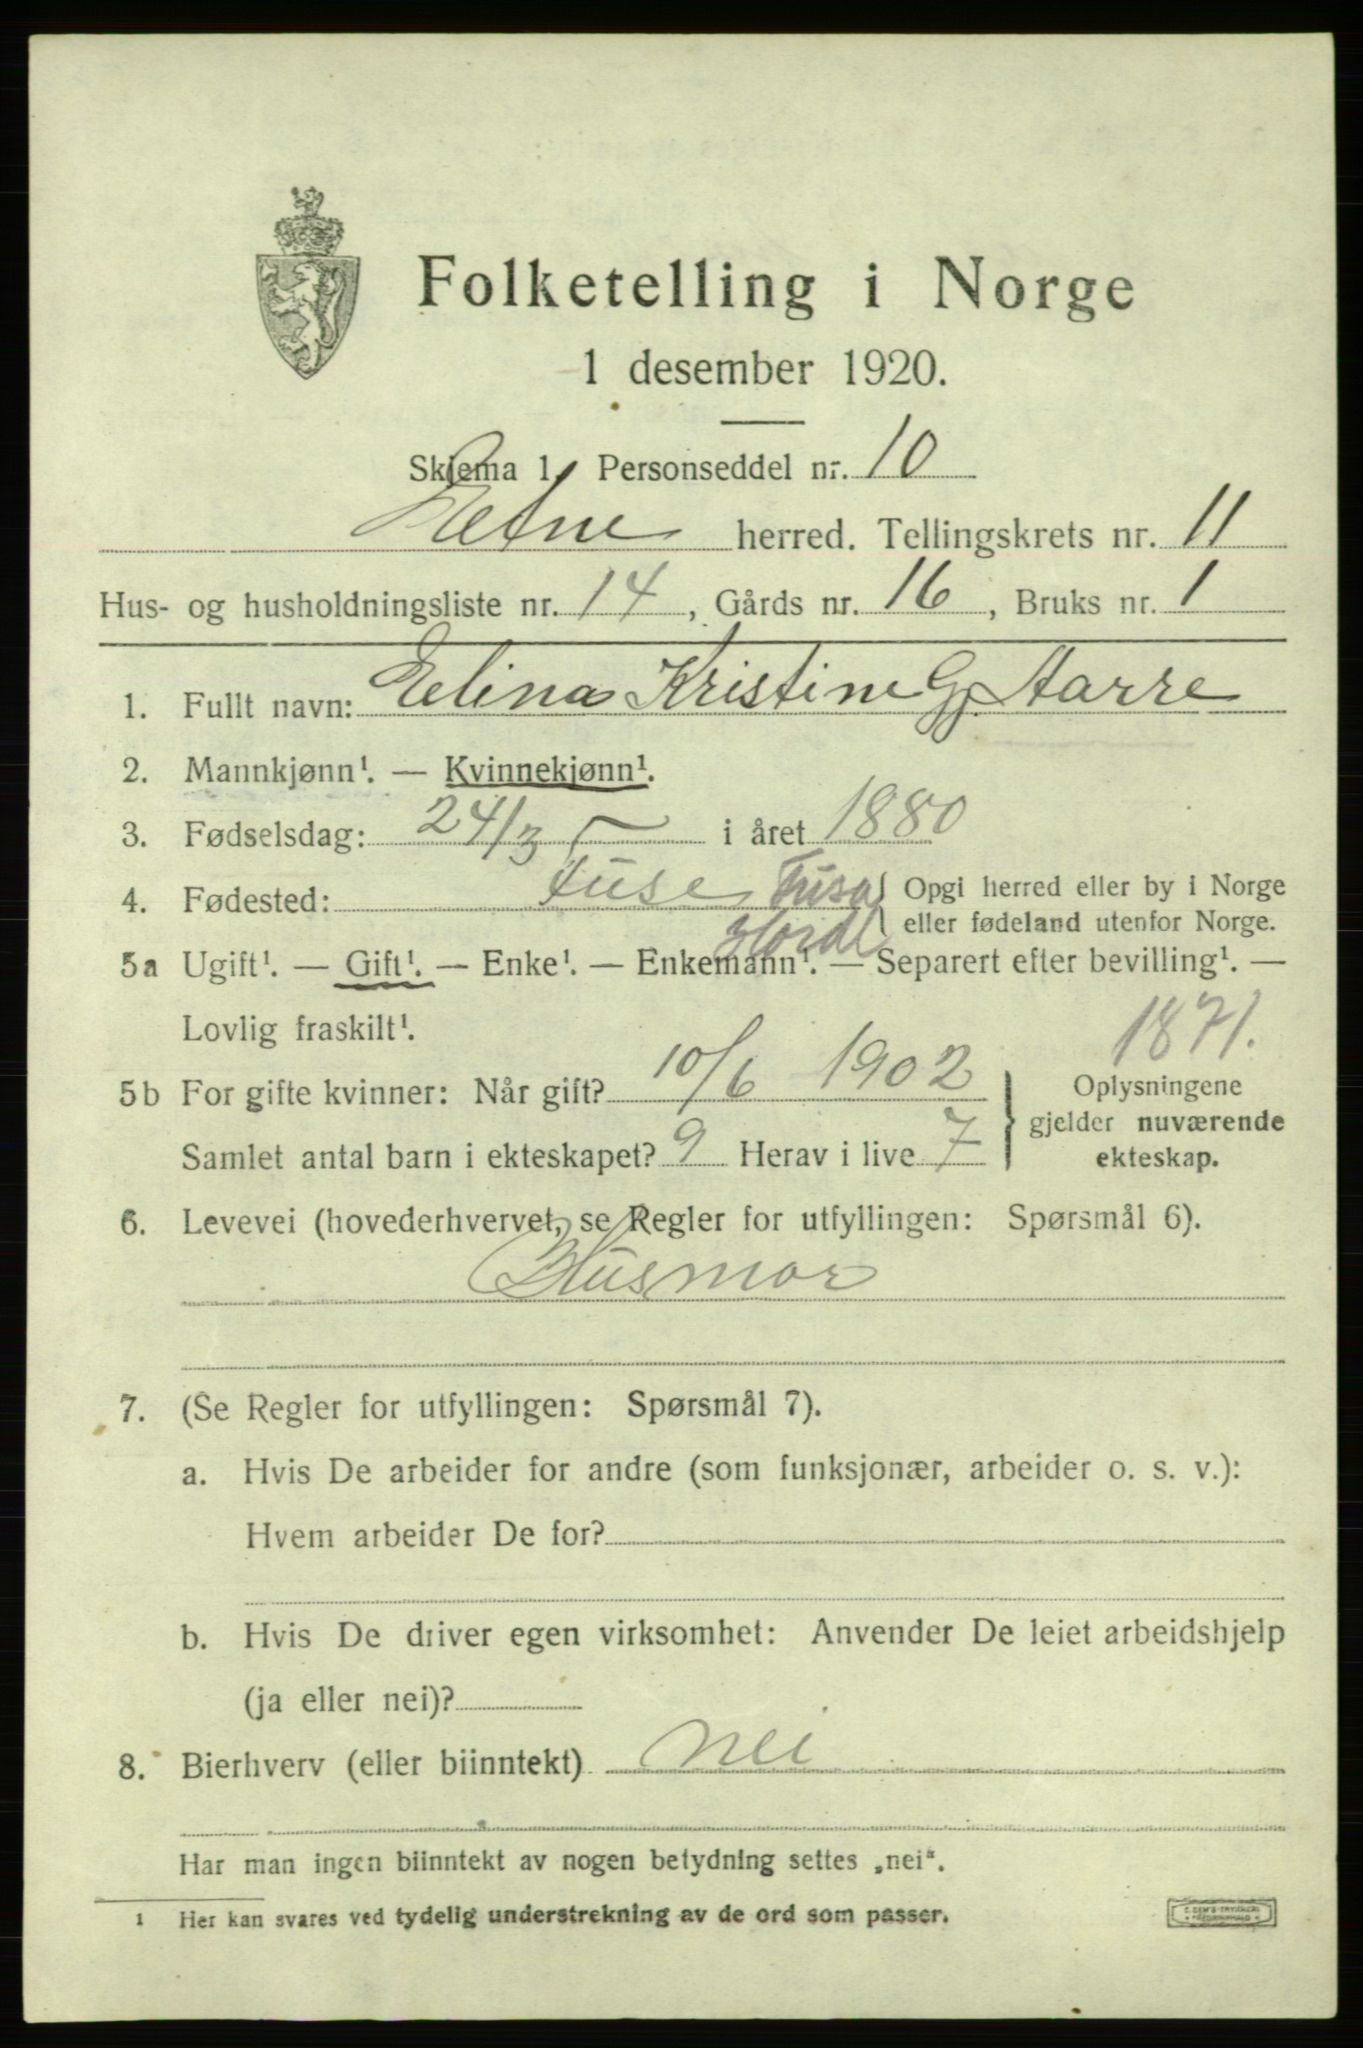 Folketelling i Norge
1 desember 1920.
Skjema 1. Personseddel nr. 10
Etne herred. Tellingskrets nr. 11
Hus- og husholdningsliste nr. 14, Gårds nr. 16, Bruks nr. 1
1. Fullt navn: Elina Kristine G. Aarre
2. Mannkjønn¹. — Kvinnekjønn¹.
3. Fødselsdag: 24/3 — i året 1880
4. Fødested: Fuse Fusa Opgi herred eller by i Norge
Hordl eller fødeland utenfor Norge.
5a Ugift¹. — Gift¹. — Enke¹. — Enkemann¹. — Separert efter bevilling¹. —
Lovlig fraskilt¹. 1871.
5b For gifte kvinner: Når gift? 10/6 1902 Oplysningene
gjelder nuværende
Samlet antal barn i ekteskapet? 9 Herav i live 7 ekteskap.
6. Levevei (hovederhvervet, se Regler for utfyllingen: Spørsmål 6).
Husmor
7. (Se Regler for utfyllingen: Spørsmål 7).
a. Hvis De arbeider for andre (som funksjonær, arbeider o. s. v.):
Hvem arbeider De for?
b. Hvis De driver egen virksomhet: Anvender De leiet arbeidshjelp
(ja eller nei)?
8. Bierhverv (eller biinntekt) nei
Har man ingen biinntekt av nogen betydning settes „nei“.
1 Her kan svares ved tydelig understrekning av de ord som passer.